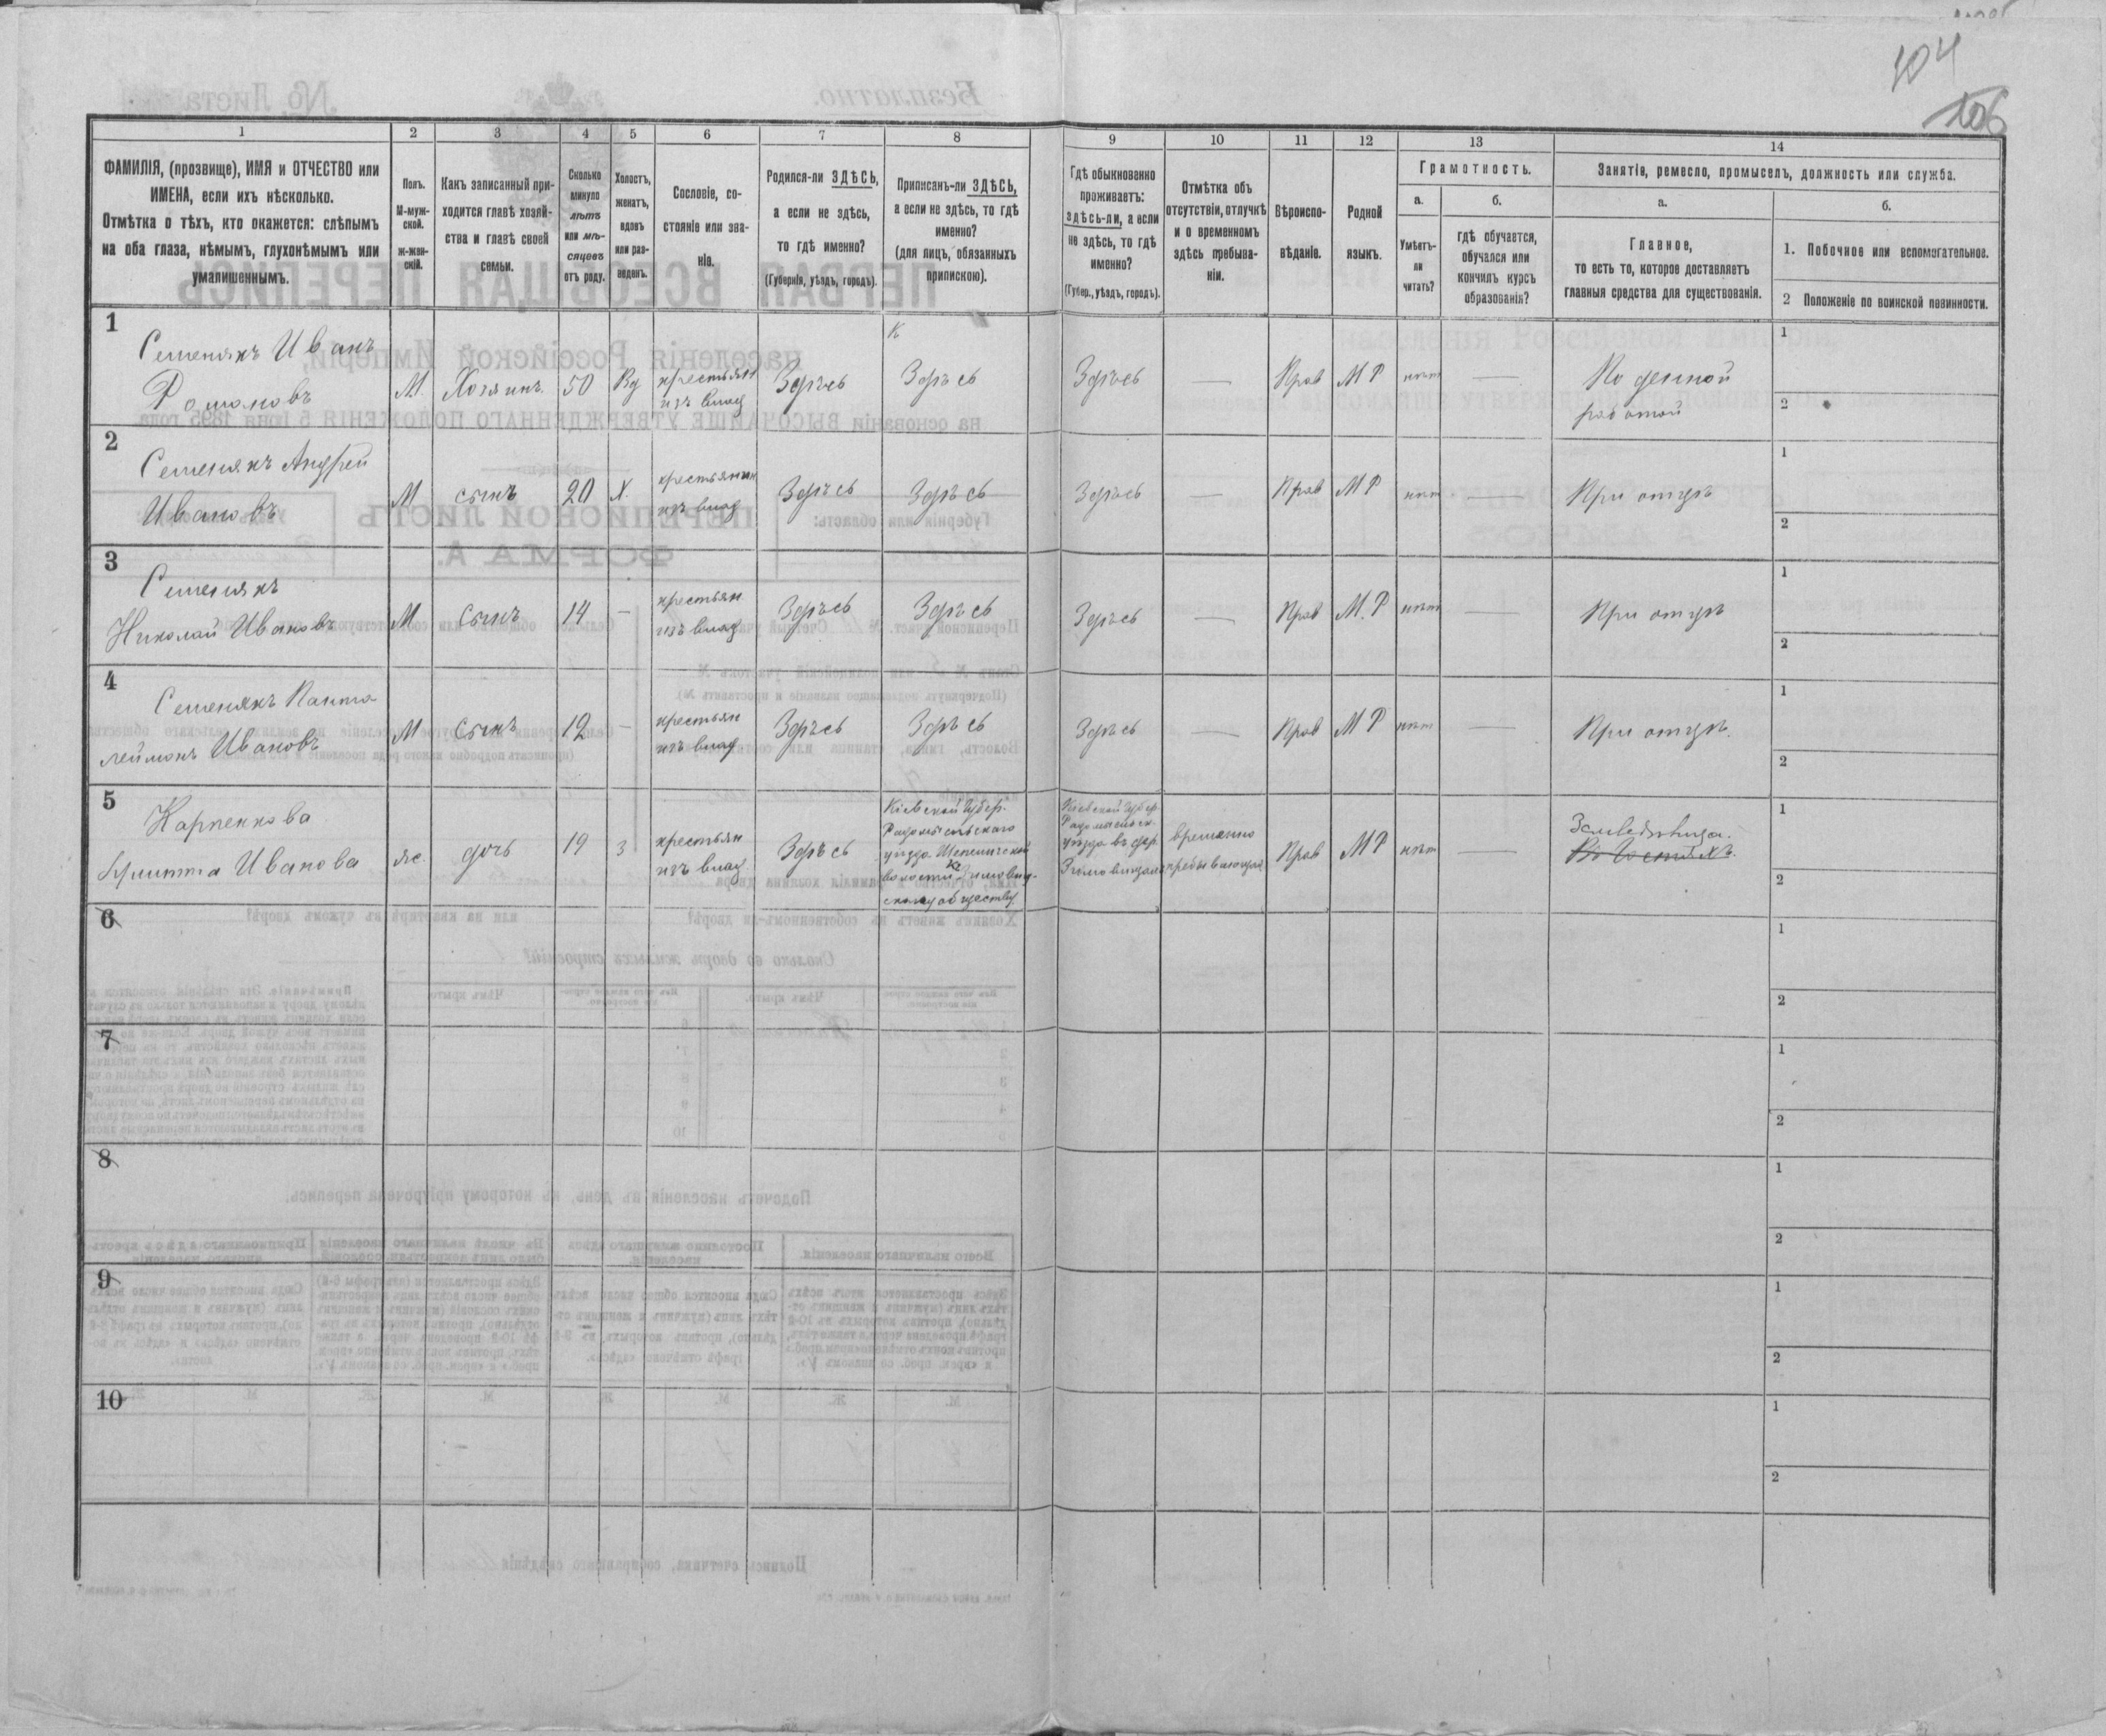 104
106
1
2
3
4
5
6
7
8
9
10
11
12
13
14
ФАМИЛІЯ, (прозвище), ИМЯ и ОТЧЕСТВО или
ИМЕНА, если ихъ нѣсколько.
Отмѣтка о тѣхъ, кто окажется: слѣпымъ
на оба глаза, нѣмымъ, глухонѣмымъ или
умалишеннымъ.
Полъ.
М-муж-
ской.
ж-жен-
скій.
Какъ записанный при-
ходится главѣ хозяй-
ства и главѣ своей
семьи.
Сколько
минуло
лѣтъ
или мѣ-
сяцевъ
отъ роду.
Холостъ,
женатъ,
вдовъ
или раз-
веденъ.
Сословіе, со-
стояніе или зва-
ніе.
Родился-ли ЗДѢСЬ,
а если не здѣсь,
то гдѣ именно?
(Губернія, уѣздъ, городъ).
Приписанъ-ли ЗДѢСЬ,
а если не здѣсь, то гдѣ
именно?
(для лицъ, обязанныхъ
припискою).
Гдѣ обыкновенно
проживаетъ:
здѣсь-ли, а если
не здѣсь, то гдѣ
именно?
(Губер., уѣздъ, городъ).
Отмѣтка объ
отсутствіи, отлучкѣ
и о временномъ
здѣсь пребыва-
ніи.
Вѣроиспо-
вѣданіе.
Родной
языкъ.
Грамотность.
а.
Умѣетъ-
ли
читать?
б.
гдѣ обучается,
обучался или
кончилъ курсъ
образованія?
Занятіе, ремесло, промыселъ, должность или служба.
а.
Главное,
то есть то, которое доставляетъ
главныя средства для существованія.
б.
1. Побочное или вспомогательное.
2 Положеніе по воинской повинности.
1
Семенякъ Иванъ
Романовъ
М.
Хозяинъ.
50
Вд
крестьян
изъ влад
Здѣсь
Здѣсь
Здѣсь
—
Прав
М Р
нѣт
—
Поденной
работой
1
2
2
Семенякъ Андрей
Ивановъ
М
сынъ
20
Х.
крестьянин
изъ влад
Здѣсь
Здѣсь
Здѣсь
—
Прав
М Р
нѣт
—
При отцѣ
1
2
3
Семенякъ
Николай Ивановъ
М
сынъ
14
—
крестьян
изъ влад
Здѣсь
Здѣсь
Здѣсь
—
Прав
М. Р
нѣт
—
При отцѣ
1
2
4
Семенякъ Панта
леймонъ Ивановъ
М
сынъ
12
—
крестьян
изъ влад
Здѣсь
Здѣсь
Здѣсь
—
Прав
М Р
нѣт
—
При отцѣ.
1
2
5
Карпенкова
Ивановa
же.
дочь
19
З
крестьян
изъ влад
Здѣсь
Кіевской Губер.
Радомысльскаго
уѣзда
волости
обществу.
Кіевской Губер.
уѣзда въ дер.
временно
пребывающая
Прав
М Р
нѣт
—
1
2
6
1
2
7
1
2
8
1
2
9
1
2
10
1
2